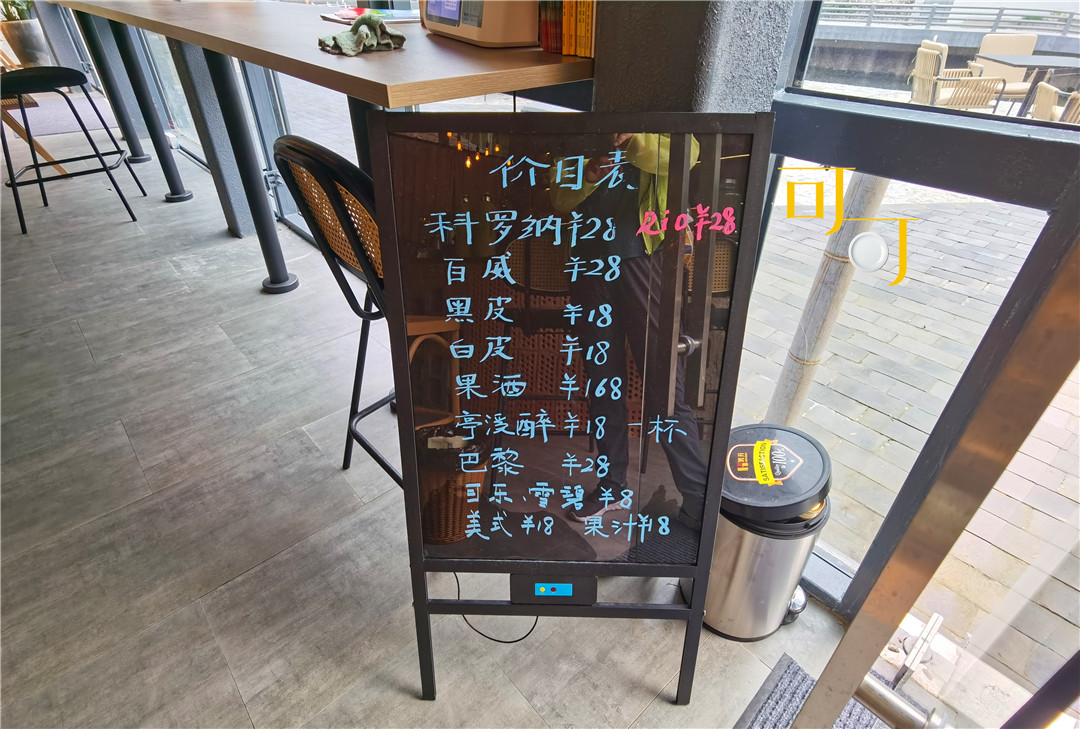 价目表
科罗纳¥28 Rio¥28
百威 ¥28
黑皮 ¥18
白皮 ¥18
果酒 ¥168
亭渓醉 ¥18 一杯
巴黎 ¥28
可乐、雪碧 ¥8
美式 ¥18 果汁¥18
可可
SATISFACTION
100%